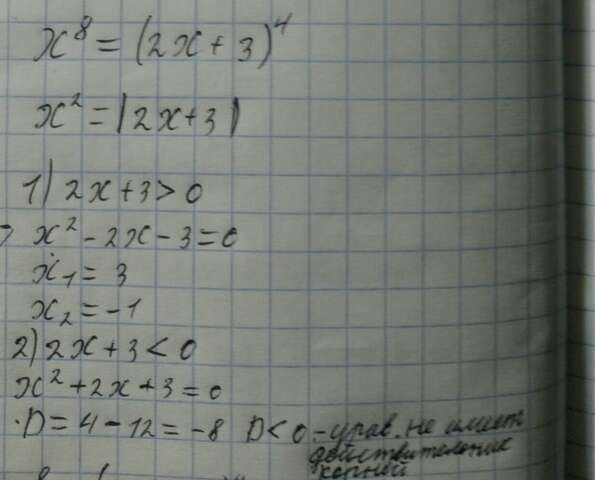 x⁸ = (2x + 3)⁴
x² = |2x+3|
1) 2x + 3 > 0
x² - 2x - 3 = 0
x₁ = 3
x₂ = -1
2) 2x + 3 < 0
x² + 2x + 3 = 0
D = 4 - 12 = -8 D < 0 - урав. не имеет
действительных
корней